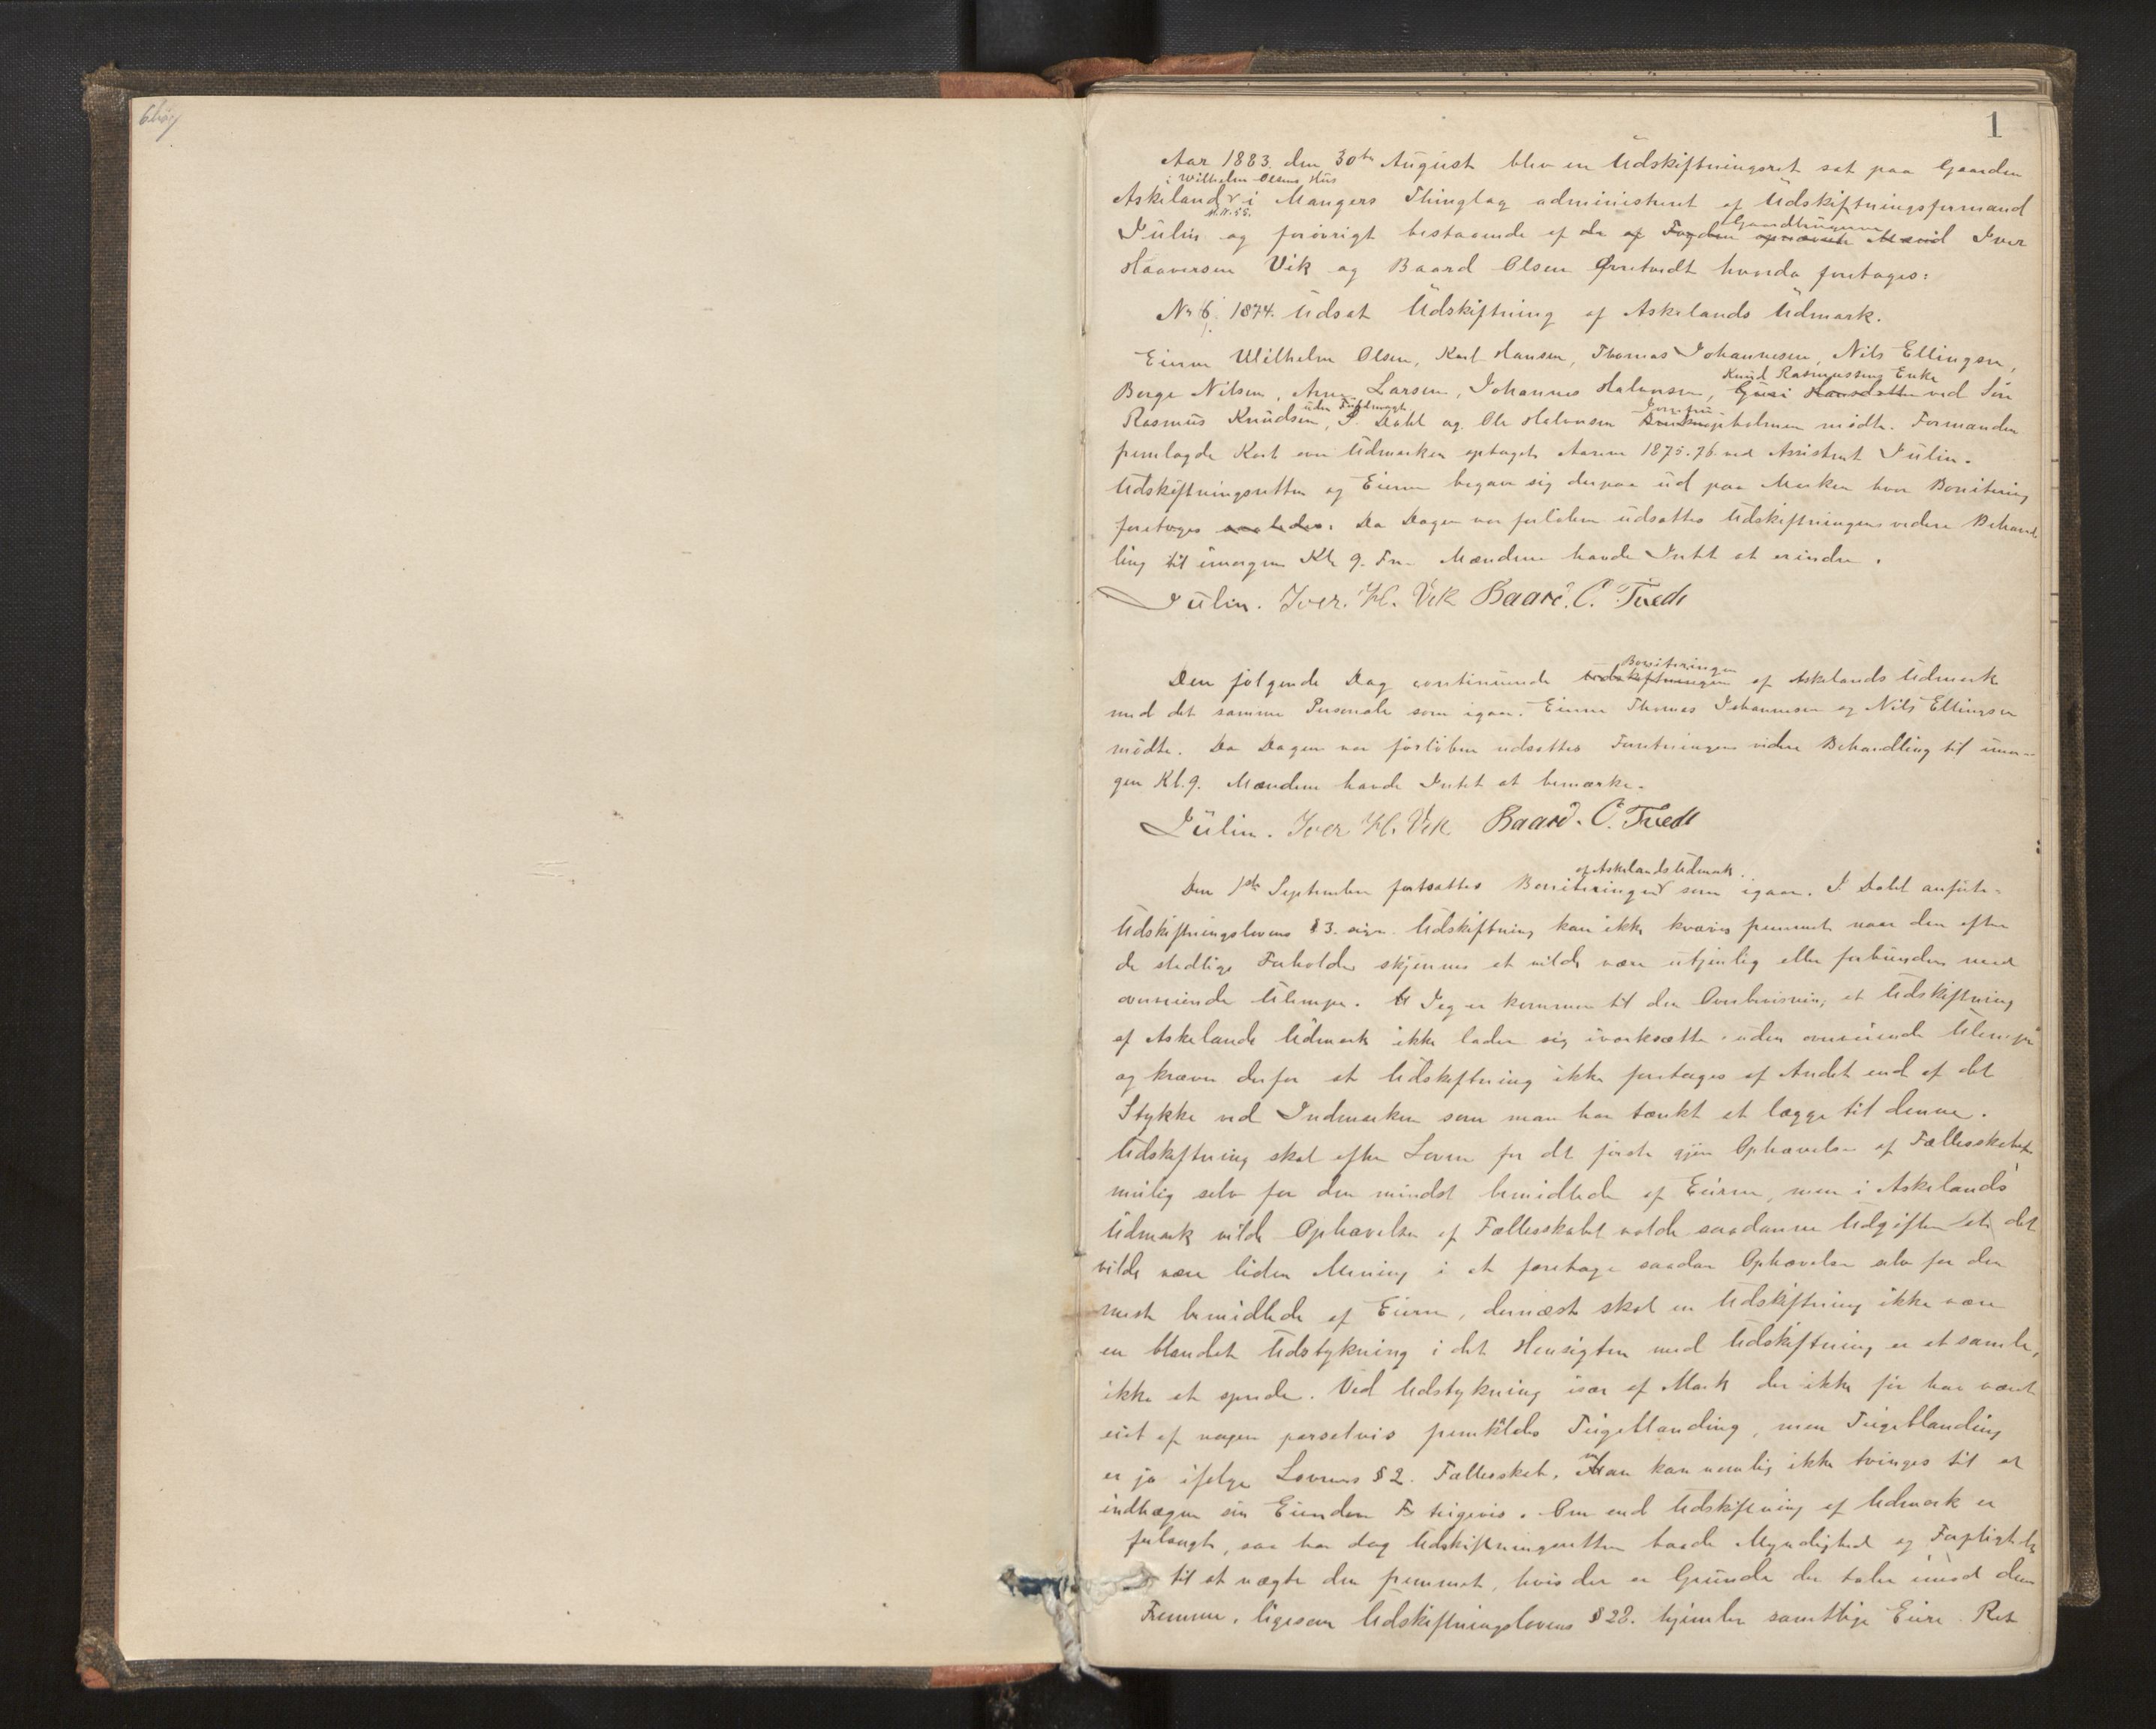 1
Aar 1883 den 30te August blev en Udskiftningsret sat paa Gaarden
i Wilhelm Olsens Hus
Askeland i Mangers Thinglag administreret af Udskiftningsformand
Julin og forøvrigt bestaaende af de af Fogden opnævnte Mænd Iver
Haaversen Vik og Baard Olsen hvorda foretages:
No 6. 1874. Udsat Udskiftning af Askelands Udmark.
Eierne Wilhelm Olsen, Karl Hansen, Thomas Johannesen, Nils Ellingsen,
Knud Rasmussens Enke
Berge Nilsen, Arne Larsen, Johannes Halvorsen, Guri Hansdatter ved Søn
uden Fuldmagt
Rasmus Knudsen, I. Dahl og Ole Halvorsen mødte. Formanden
fremlagde Kart over Udmarken optaget Aarene 1875-76 ved Assistent Julin.
Udskiftningsretten og Eierne begave sig derpaa ud paa Marken hvor Bonitering
foretoges saaledes. Da Dagen var forløben udsattes Udskiftningens videre Behand
ling til imorgen Kl. 9. Fm. Mændene havde Intet at erindre.
Julin. Iver. H. Vik Baard. O. Tvedt
Boniteringen
Den følgende Dag continuerede Udskiftningen af Askelands Udmark
med det samme Personale som igaar. Eierne Thomas Johannesen og Nils Ellingsen
mødte. Da Dagen var forløben udsattes Forretningens videre Behandling til imor-
gen Kl. 9. Mændene havde Intet at bemærke.
Julin. Iver H. Vik Baard. O. Tvedt
af Askelands Udmark
Den 1ste September fortsattes Boniteringen som igaar. I. Dahl anførte
Udskiftningslovens § 3. siger Udskiftning kan ikke kræves fremmet naar den efter
de stedlige Forholde skjønnes at vilde være utjenlig eller forbunden med
overveiende Ulempe. Jeg er kommen til den Overbevisning at Udskiftning
af Askelands Udmark ikke lader sig iværksætte uden overveiende Ulempe
og kræver derfor at Udskiftning ikke foretages af Andet end af det
Stykke ved Indmarken som man har tænkt at lægge til denne.
Udskiftning skal efter Loven for det første gjøre Ophævelse af Fællesskabet
mulig selv for den mindst bemidlede af Eierne, men i Askelands
Udmark vilde Ophævelse af Fællesskabet volde saadanne Udgifter at det
vilde være liden Mening i at foretage saadan Ophævelse selv for den
mest bemidlede af Eierne, dernæst skal en Udskiftning ikke være
en blandet Udstykning i det Hensigten med Udskiftning er at samle,
ikke at sprede. Ved Udstykning især af Mark der ikke før har været
eiet af nogen parselvis fremkaldes Teigeblanding, men Teigeblanding
er jo ifølge Lovens § 2. Fællesskab. Man kan nemlig ikke tvinges til at
indhægne sin Eiendom teigevis. Om end Udskiftning af Udmark er
forlangt, saa har dog Udskiftningsretten baade Myndighed og Forpligtelse
til at nægte den fremmet, hvis der er Grunde der taler imod dens
Fremme, ligesom Udskiftningslovens § 28. hjemler samtlige Eiere Ret